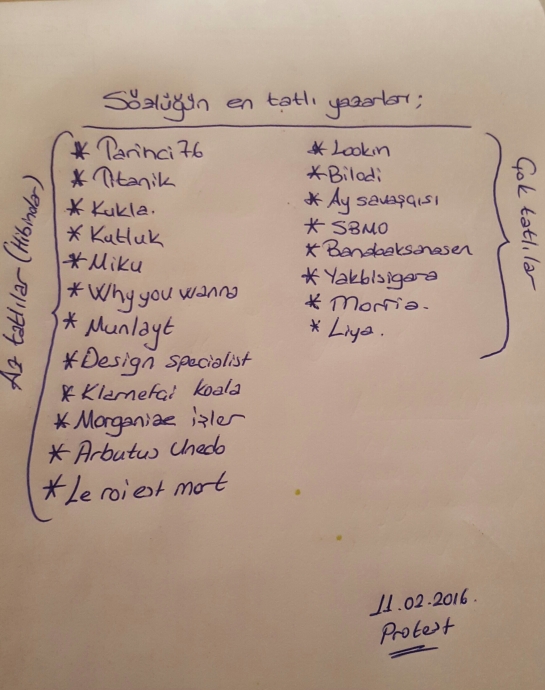 Sözlüğün en tatlı yazarları;
Az tatlılar (Hibinder)
* Parinci76
* Titanik
* Kukla.
* Kutluk
* Miku
* Why you wanna
* Munlayt
* Design specialist
* Klarnetçi koala
* Morganize işler
* Arbutus Unedo
* Le roi est mort
* Lookin
* Biladi
* Ay savaşçısı
* SBMO
* Banabaksanasen
* Yakbisigara
* Morria.
* Liya.
Çok tatlılar
11.02.2016.
Protest